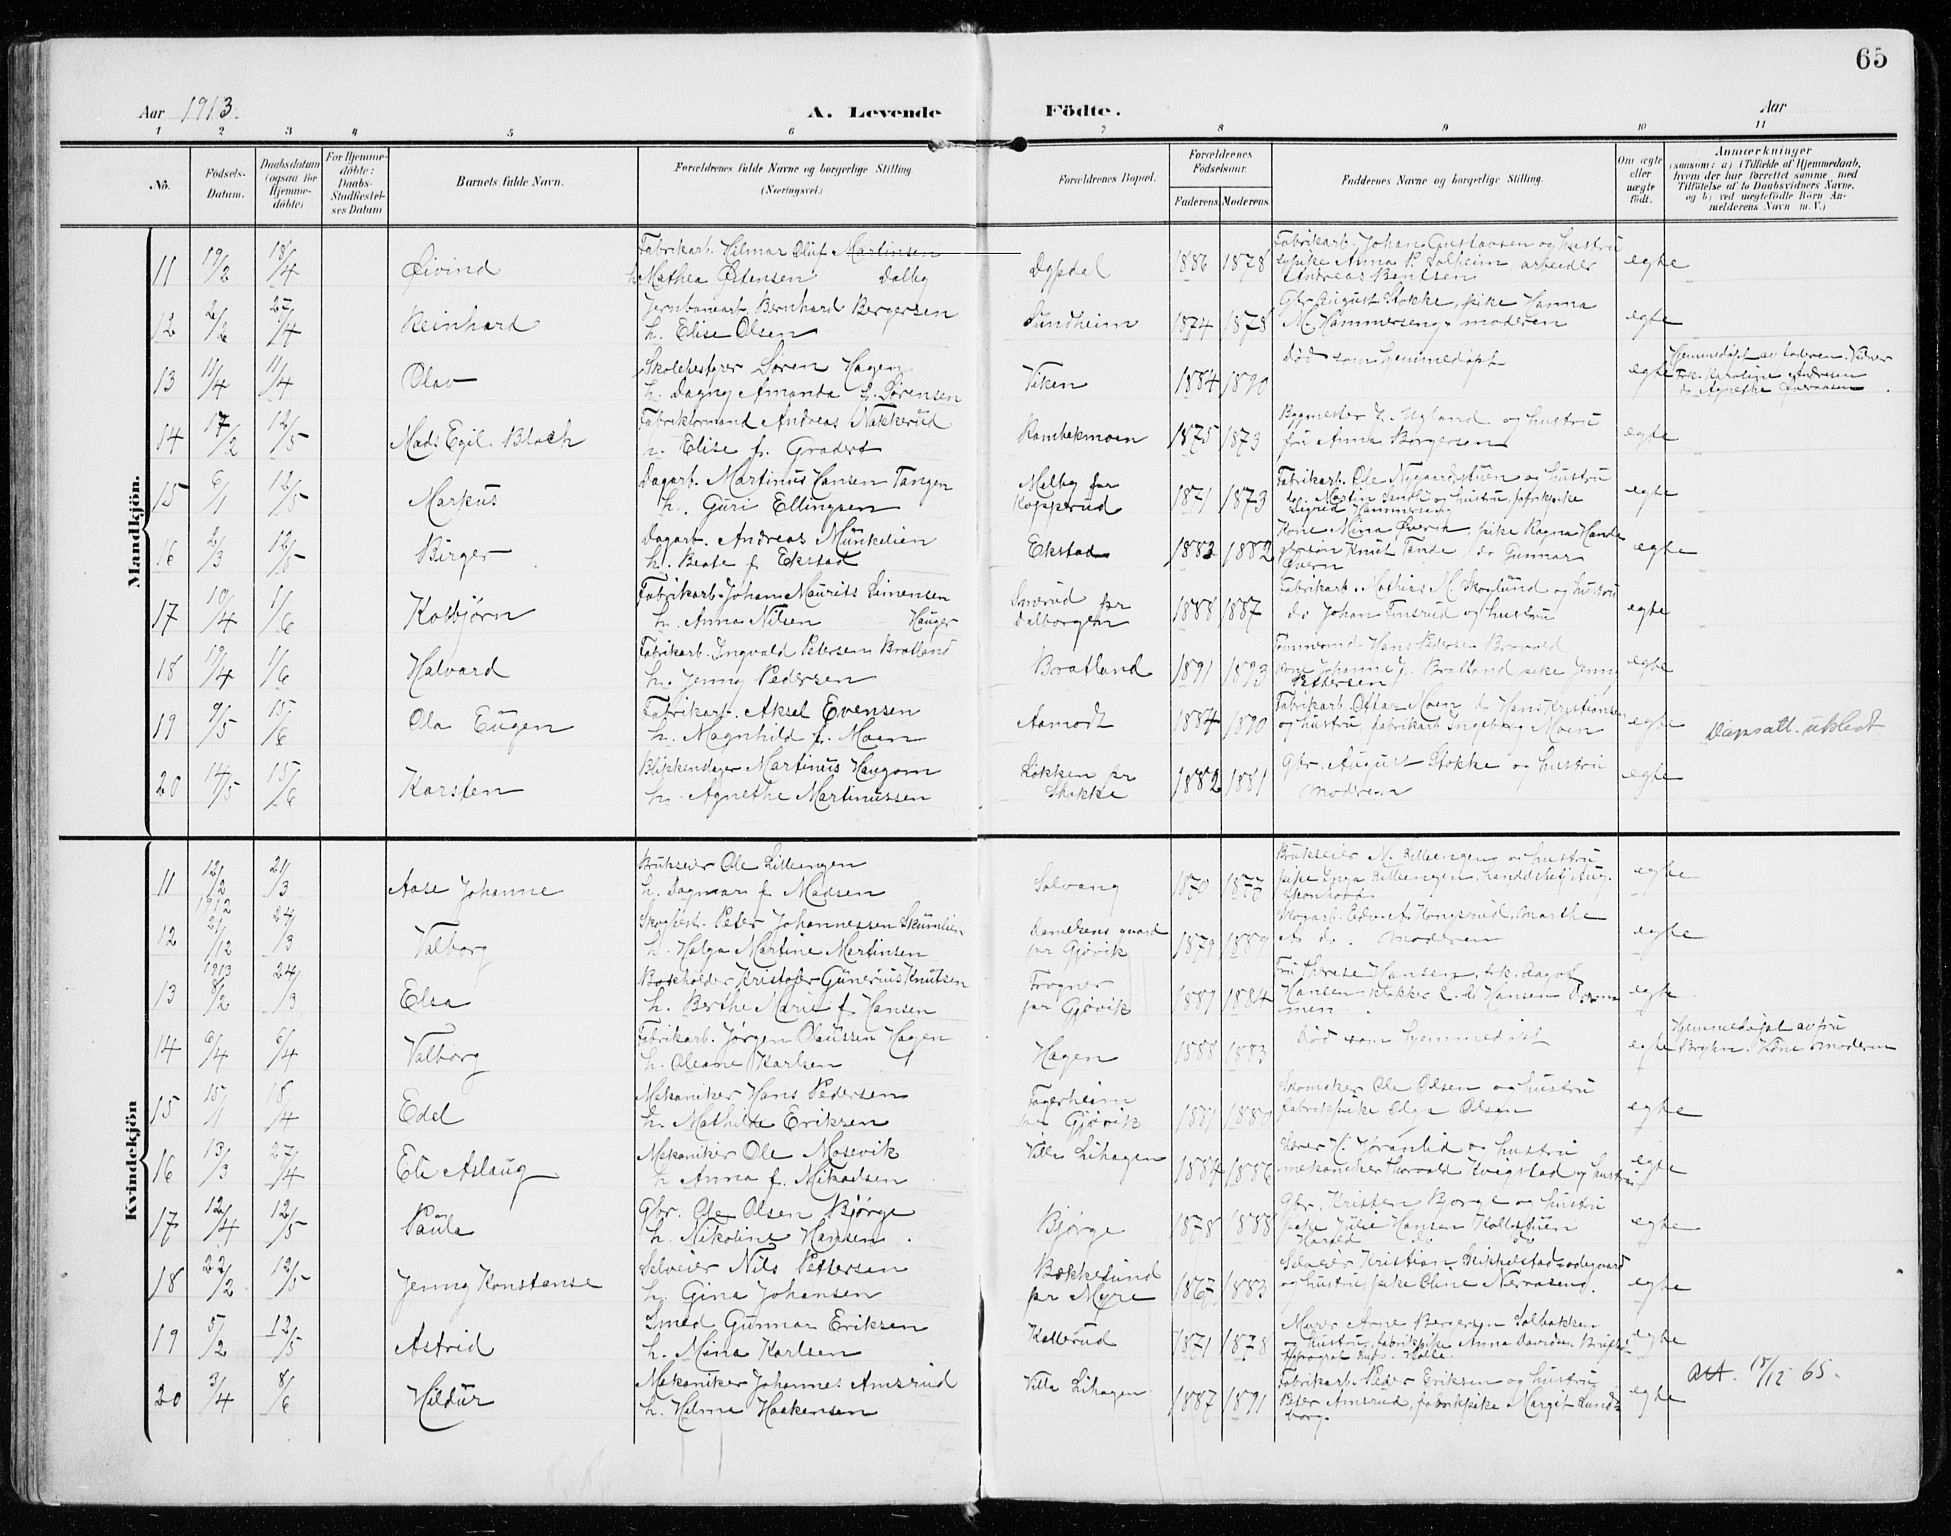 65
Aar 1913. A. Levende Födte. Aar
1 2 3 4 5 6 7 8 9 10 11
No. Födsels-Datum. Daabsdatum (ogsaa for Hjemme-döbte) For Hjemme-döbte: Daabs-Stadfæstel-ses Datum Barnets fulde Navn. Forældrenes fulde Navne og borgerlige Stilling. (Næringsvei.) Forældrenes Bopæl. Forældrenes Födselsaar. Faderens. Moderens. Faddernes Navne og borgerlige Stilling. Om ægte eller uægte födt. Anmærkninger (saasom: a) i Tilfælde af Hjemmedaab, hvem der har forrettet samme, med Tilföielse af to Daabsvidners Navne, og b) ved uægtefödte Börn An-melderens Navn m. V.)
Mandkjön.
11 19/2 18/4 Øivind Fabrikarb. Hilmar Oluf Martinsen
h. Mathea Østensen Dalby 1886 1878 Fabrikarb. Johan Gustavsen og hustru
pike Anna P. Solheim arbeider
Andreas Bentsen egte
12 2/2 27/4 Reinhard Jernbanearb. Bernhard Bergersen
h. Elise Olsen Sundheim 1874 1878 Gbr. August Stokke, pike Hanna
M. Hammerseng, moderen egte
13 11/4 11/4 Olav Skolebestyrer Søren Hagen
h. Dagny Amanda f. Sørensen Viken 1884 1890 Død som hjemmedøpt egte Hjemmedøpt av faderen. Vidner
Frk. Karoline Andresen
do Agnethe
14 17/2 12/5 Mads Egil Bloch Fabrikformand Andreas Nakkerud
h. Elise f. Gradert Rambekmoen 1875 1873 Bygmester og hustru
fru Anna Borgersen egte
15 6/1 12/5 Markus Dagarb. Martinus Hansen Tangen
h. Guri Ellingsen Melby pr
Kopperud 1871 1873 Fabrikarb. Ole Nygaardstuen og hustru
do. Martin og hustru, fabrikpike
Sigrid Hammerseng egte
16 2/3 12/5 Birger Dagarb. Andreas Munkelien
h. Beate f. Ekstad Ekstad 1883 1882 Kone Mina Øvern, pike Ragna
Knut Tande, do Gunnar
Øvern egte
17 10/4 1/6 Kolbjørn Fabrikarb. Johan Maurits Simensen
h. Anna Nilsen Hauger Smerud pr
Dalborgen 1888 1887 Fabrikarb. Mathias M. Skoglund og hustru
do Johan og hustru egte
18 19/4 1/6 Halvard Fabrikarb. Ingvald Petersen Bratland
h. Jenny Pedersen Bratland 1891 1893 Hans Pedersen
kone Johanne J. Bratland pike Jenny
Pettersen egte
19 9/5 15/6 Ola Eugen Fabrikarb. Aksel Evensen
h. Magnhild f. Moen Aamodt 1884 1890 Fabrikarb. Ottar Moen do Hans Kristiansen
og hustru, fabrikarb. Ingeborg Moen egte Dåpsatt. utstedt
20 14/5 15/6 Karsten Blikkenslager Martinus Haugom
h. Agnethe Martinussen Løkken pr
Stokke 1882 1881 Gbr. August Stokke og hustru
moderen egte
Kvindekjön
11 12/2 24/3 Aase Johanne Brukseier Ole Lillengen
h. Dagmar f. Madsen Solvang 1870 Brukseier M. Lillengen og hustru
pike Inga Lillengen, Aug.
egte
1912
12 21/12 24/3 Valborg Skogbest. Peder Johannessen Skumlien
h. Helga Martine Martinsen
pr Gjøvik 1879 1889 Skogarb. Edv. A. Kongsrud, Marthe
A. do. Moderen egte
1913
13 8/2 24/3 Elsa Bokholder Kristofer Gunerius Knutsen
h. Berthe Marie f. Hansen Frogner
pr Gjøvik 1887 1884 Fru Therese Hansen, frk. Aagot
Hansen klokker L. do Hansen
egte
14 6/4 6/4 Valborg Fabrikarb. Jørgen Olaussen Hagen
h. Oleane Karlsen Hagen 1888 1883 Død som hjemmedøpt egte Hjemmedøpt av fru
Kone Moderen
15 15/1 18/4 Edel Mekaniker Hans Pedersen
h. Mathilde Eriksen Fagerheim
pr Gjøvik 1881 1880 Skomaker Ole Olsen og hustru
fabrikpike Olga Olsen egte
16 13/3 27/4 Eli Aslaug Mekaniker Ole Mosevik
h. Anna f. Mikaelsen Villa Lihagen 1884 1886 Lærer H. og hustru
mekaniker Thorvald Kvigstad og hustru egte
17 12/4 12/5 Paula Gbr. Ole Olsen Bjørge
h. Nikoline Hansen. Bjørge 1878 1888 Gbr. Kristen Borge og hustru
pike Julie Hansen Kollstuen
Harald do do egte
18 22/2 12/5 Jenny Konstanse Selveier Nils Pettersen
h. Gina Johansen Bækkelund
pr Myre 1867 1883 Selveier Kristian
og hustru, pike Oline Nerraasen. egte
19 5/2 12/5 Astrid Smed Gunnar Eriksen
h. Mina Karlsen Kallerud 1871 1878 Murer Arne Bergersen Solbakken
og hustru, fabrikpike Anna Davidsen
egte
20 3/4 8/6 Hildur Mekaniker Johannes Amsrud
h. Helma Haakensen Villa Lihagen 1887 1891 Fabrikarb. Peder Eriksen og hustru
Peder Amsrud, fabrikpike Margit Lunds-
borg. egte att. 15/12 65.